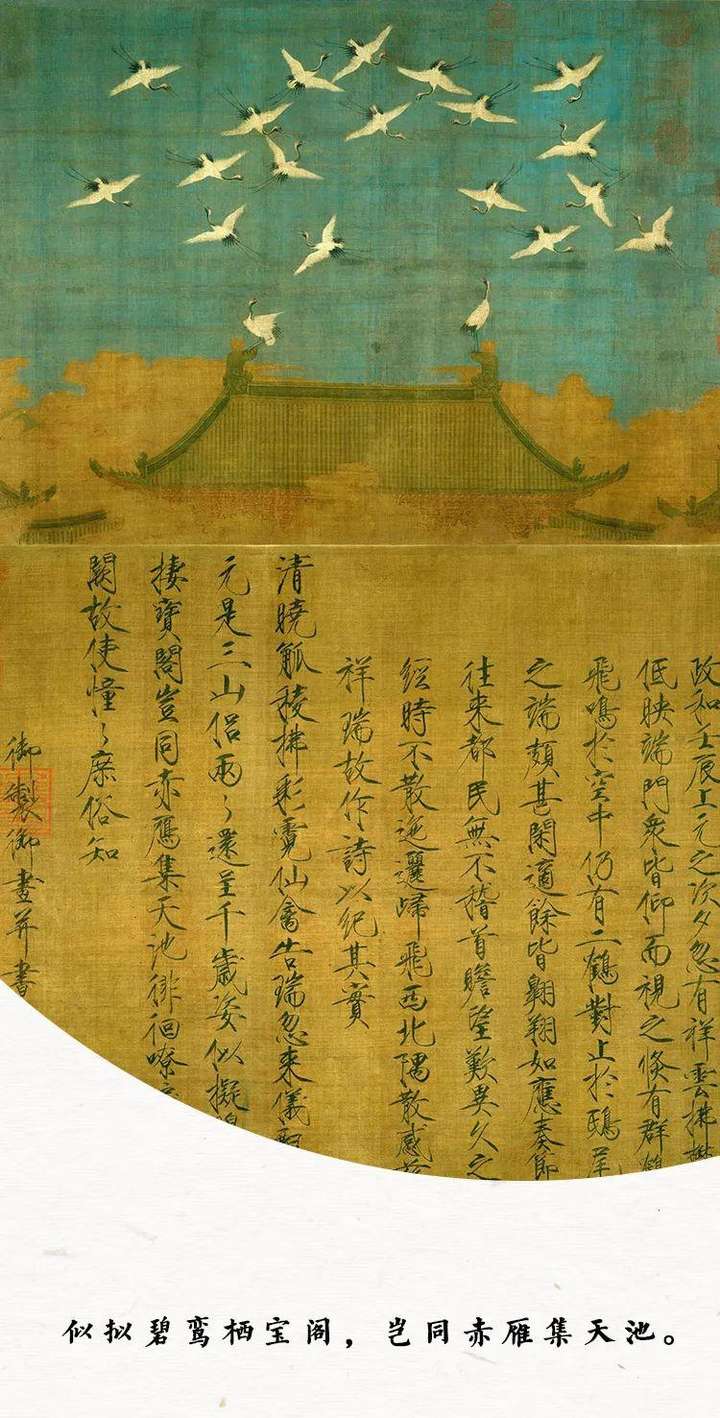 政和壬辰上元之次夕忽有祥雲拂
低映端門衆皆仰而視之倏有群鶴
飛鳴於空中仍有二鶴對止於鴟尾
之端頗甚閑適餘皆翱翔如應奏節
往來都民無不稽首瞻望歎異久之
經時不散迤邐歸飛西北隅散感
祥瑞故作詩以紀其實
清曉觚稜拂彩霓仙禽告瑞忽來儀
元是三山侶兩〻還呈千歲姿似擬
棲寶閣豈同赤鴈集天池徘徊嘹
闕故使憧〻庶俗知
御製御畫并書
似拟碧鸾栖宝阁，岂同赤雁集天池。